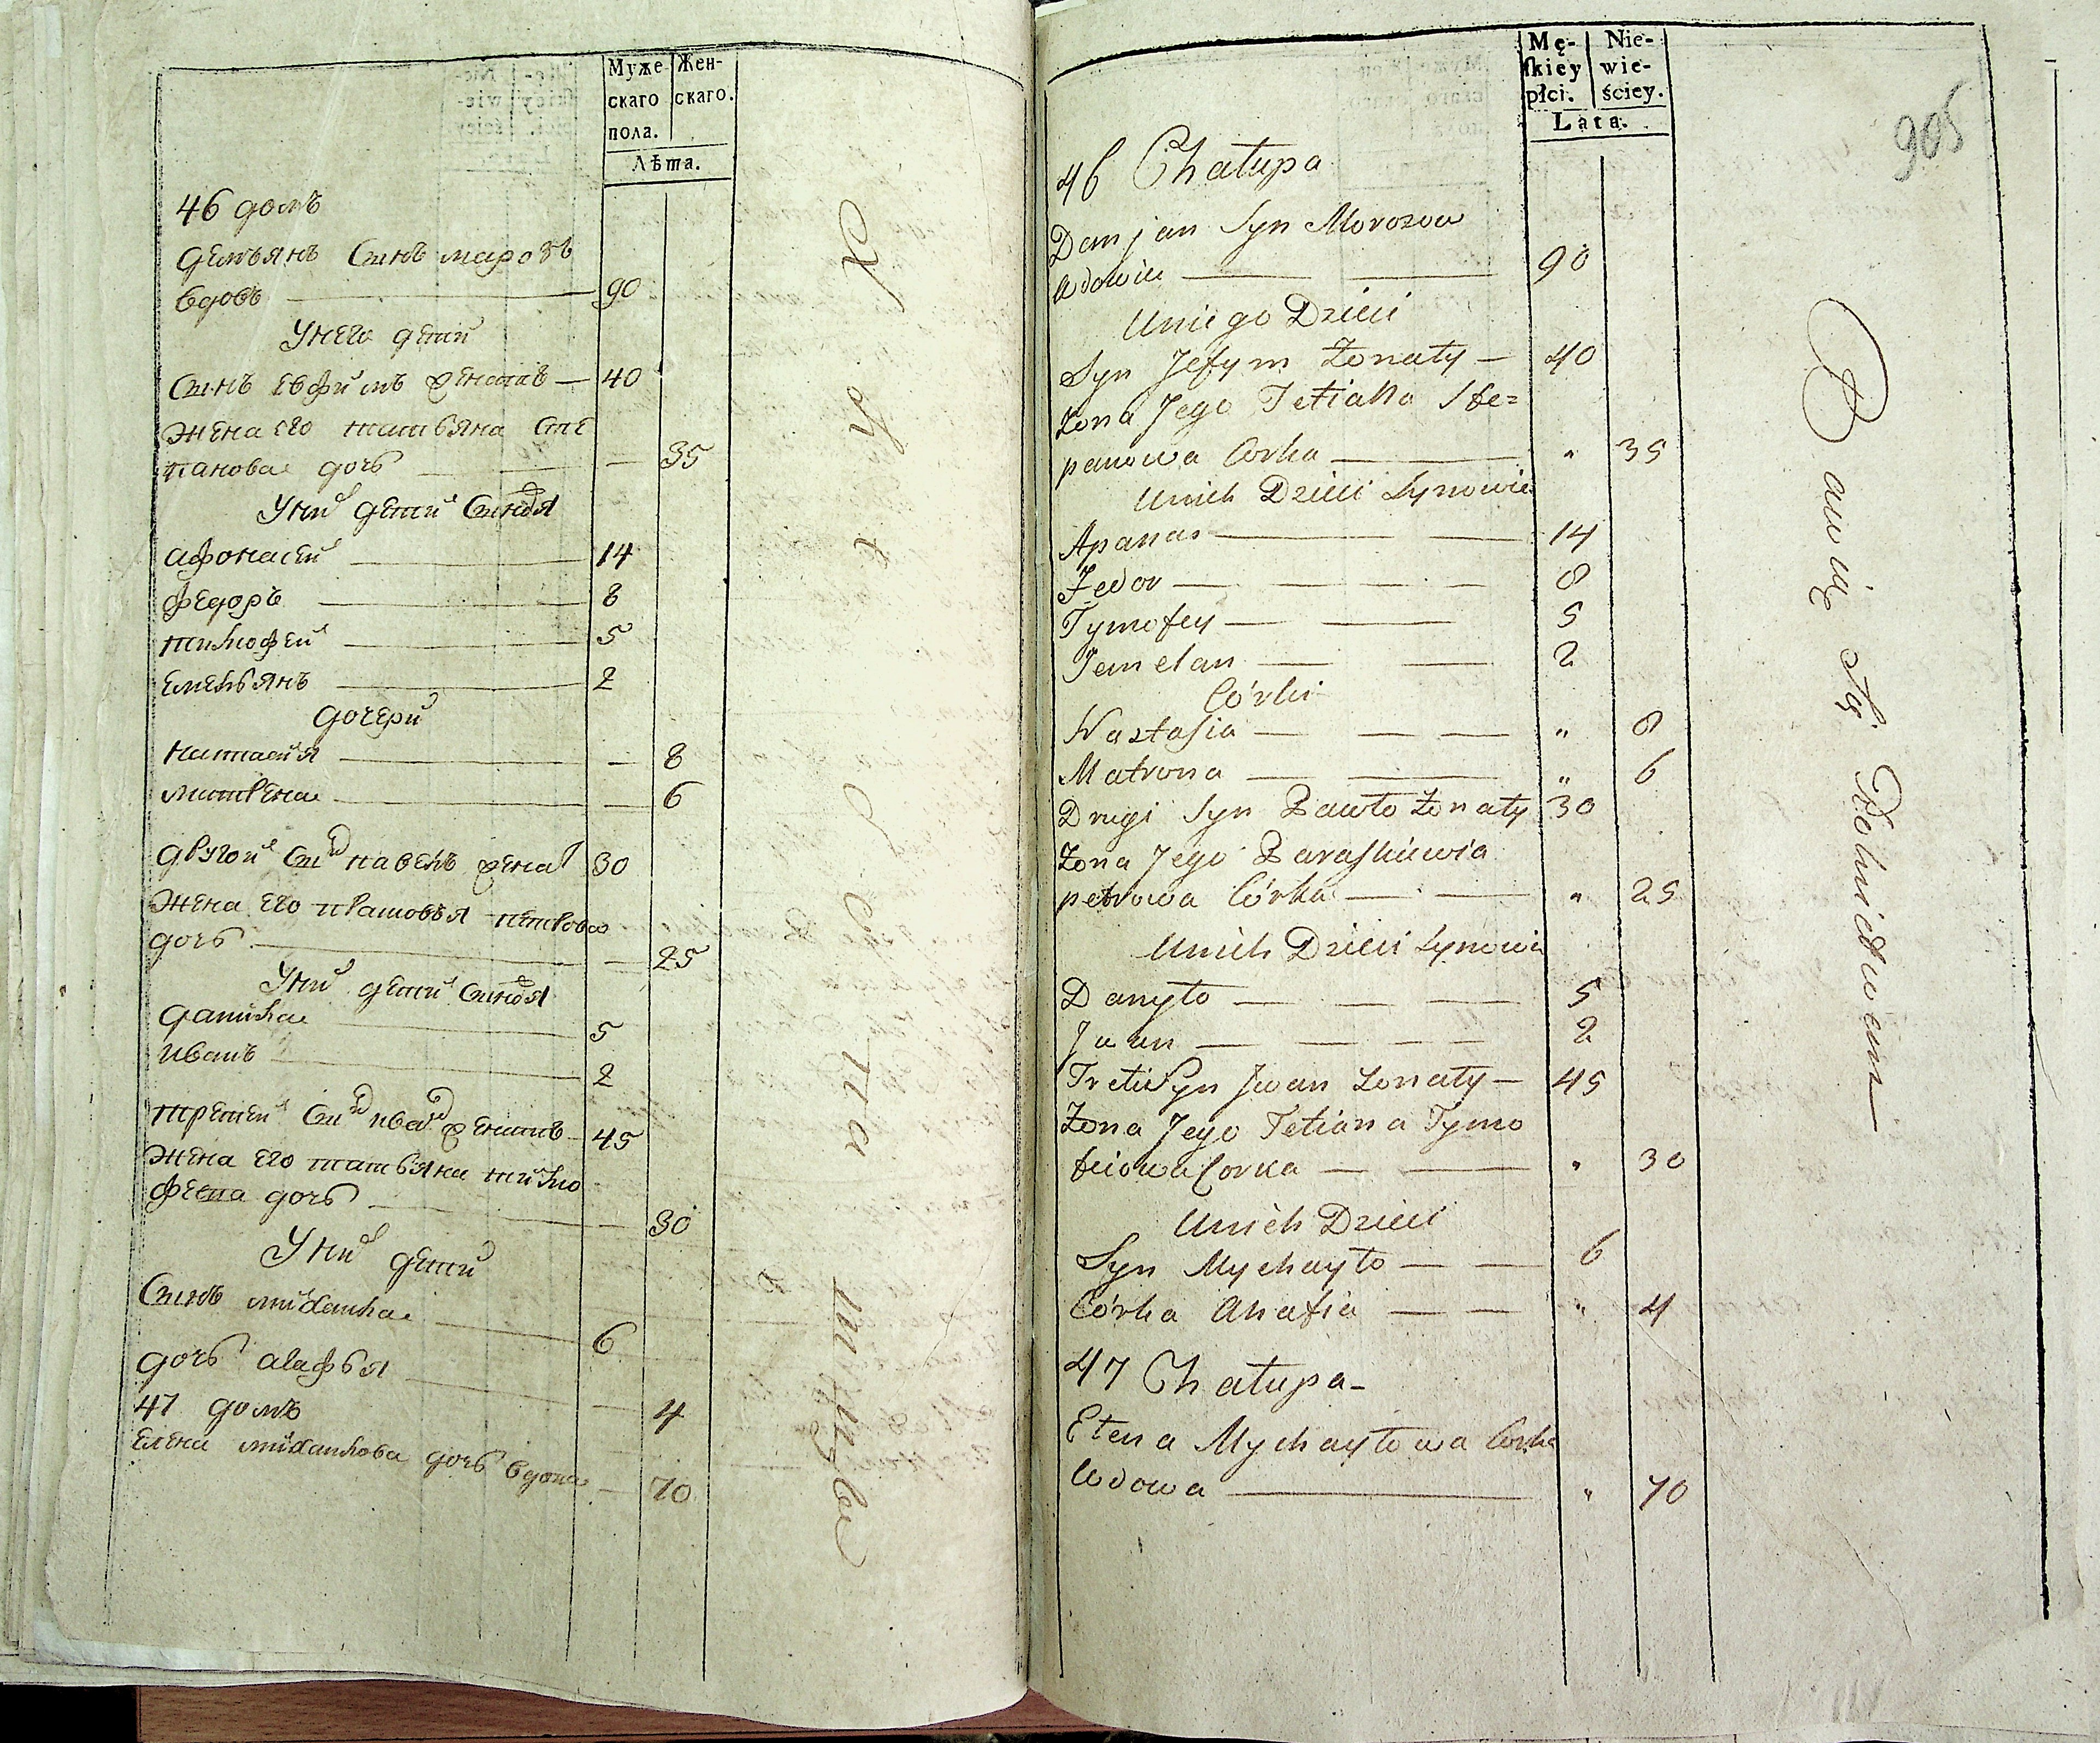 Муже-
скаго
пола.
Жен-
скаго.
Лѣта.
46 домъ
демъянъ Синъ марозъ
вдовъ — 90
Унего дети
Синъ евфимъ женатъ — 40
Жена его татьяна сте
панова дочь — — 35
Уних дети Синовя
афонасей — 14
федоръ — 8
тимофей — 5
емельянъ — 2
дочери
настасия — — 8
матрена — — 6
другой Синъ павелъ женат 30
Жена его прасковья петрова
дочь — — 25
Уних дети Синовя
данила — 5
иванъ — 2
третей Синъ иван женатъ — 45
Жена его татьяна тимо
феева дочь — — 30
Уних дети
Синъ михайла — 6
дочь агафья — 4
47 домъ
Елена михайлова дочь вдова — 70
905
Mę-
ſkiey
płci.
Nie-
wie-
ściey.
Lata.
46 Chałupa
Damjan Syn Morozow
Wdowiec — — 90
Uniego Dzieci
Syn Jefym Żonaty — 40
Żona Jego Tetiana Ste=
panowa Corka — " 35
Unich Dzieci Synowie
Apanas — — 14
Fedor — — — — 8
Tymofey — — 5
Jemelan — — 2
Córki
Nastasia — — — " 8
Matrona — — " 6
Drugi Syn Pawło Żonaty 30
Żona Jego Paraskiewia
petrowa Córka — — " 25
Unich Dzieci Synowie
Danyło — — — 5
Iwan — — — — 2
Treti Syn Iwan Żonaty — 45
Żona Jego Tetiana Tymo
feiowa Corka — — " 30
Unich Dzieci
Syn Mychayło — — 6
Córka Ahafia — — " 4
47 Chałupa —
Elena Mychayłowa Corka
Wdowa — " 70
Bawią się Rolnictwem